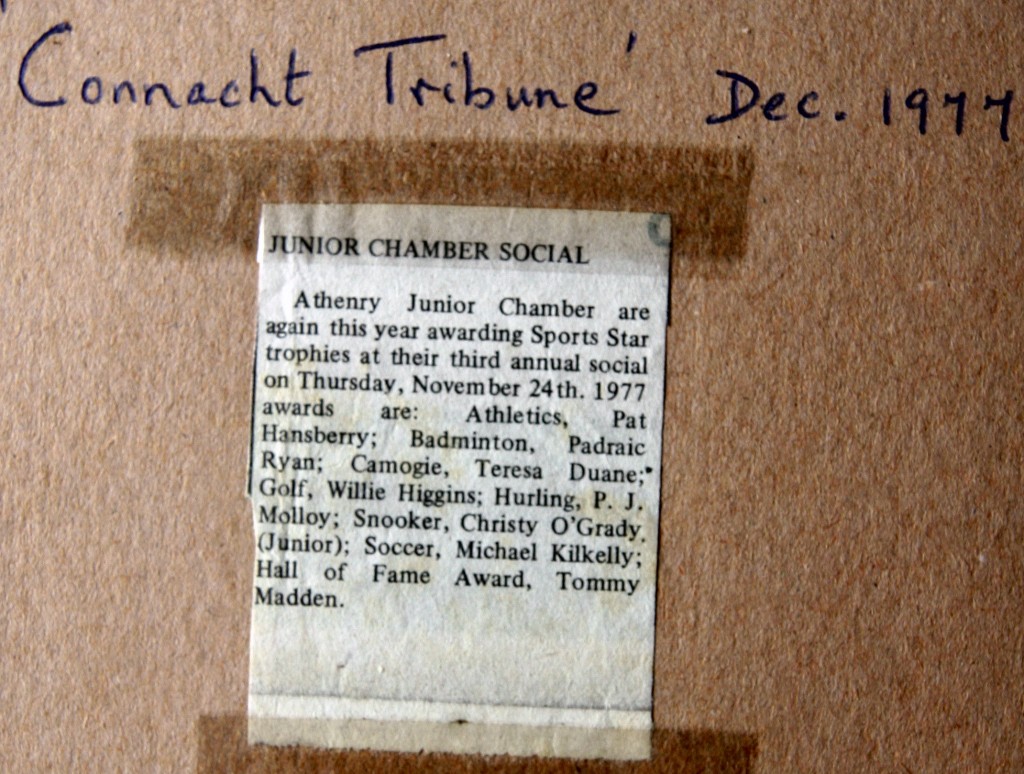 Connacht Tribune' Dec. 1977
JUNIOR CHAMBER SOCIAL
Athenry Junior Chamber are
again this year awarding Sports Star
trophies at their third annual social
on Thursday, November 24th. 1977
awards are: Athletics, Pat
Hansberry; Badminton, Padraic
Ryan; Camogie, Teresa Duane;
Golf, Willie Higgins; Hurling, P. J.
Molloy; Snooker, Christy O'Grady
(Junior); Soccer, Michael Kilkelly;
Hall of Fame Award, Tommy
Madden.